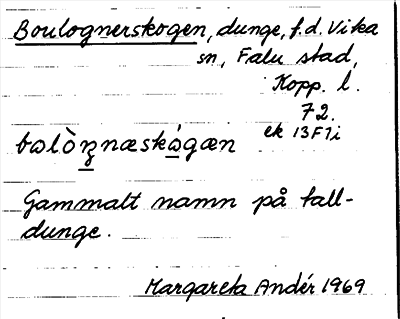 Boulognerskogen, dunge, f.d. Vika
sn, Falu stad,
Kopp. l.
72.
ek 13F7i
bɷlòŋnæskǿgæn
Gammalt namn på tall-
dunge.
Margareta Andér 1969